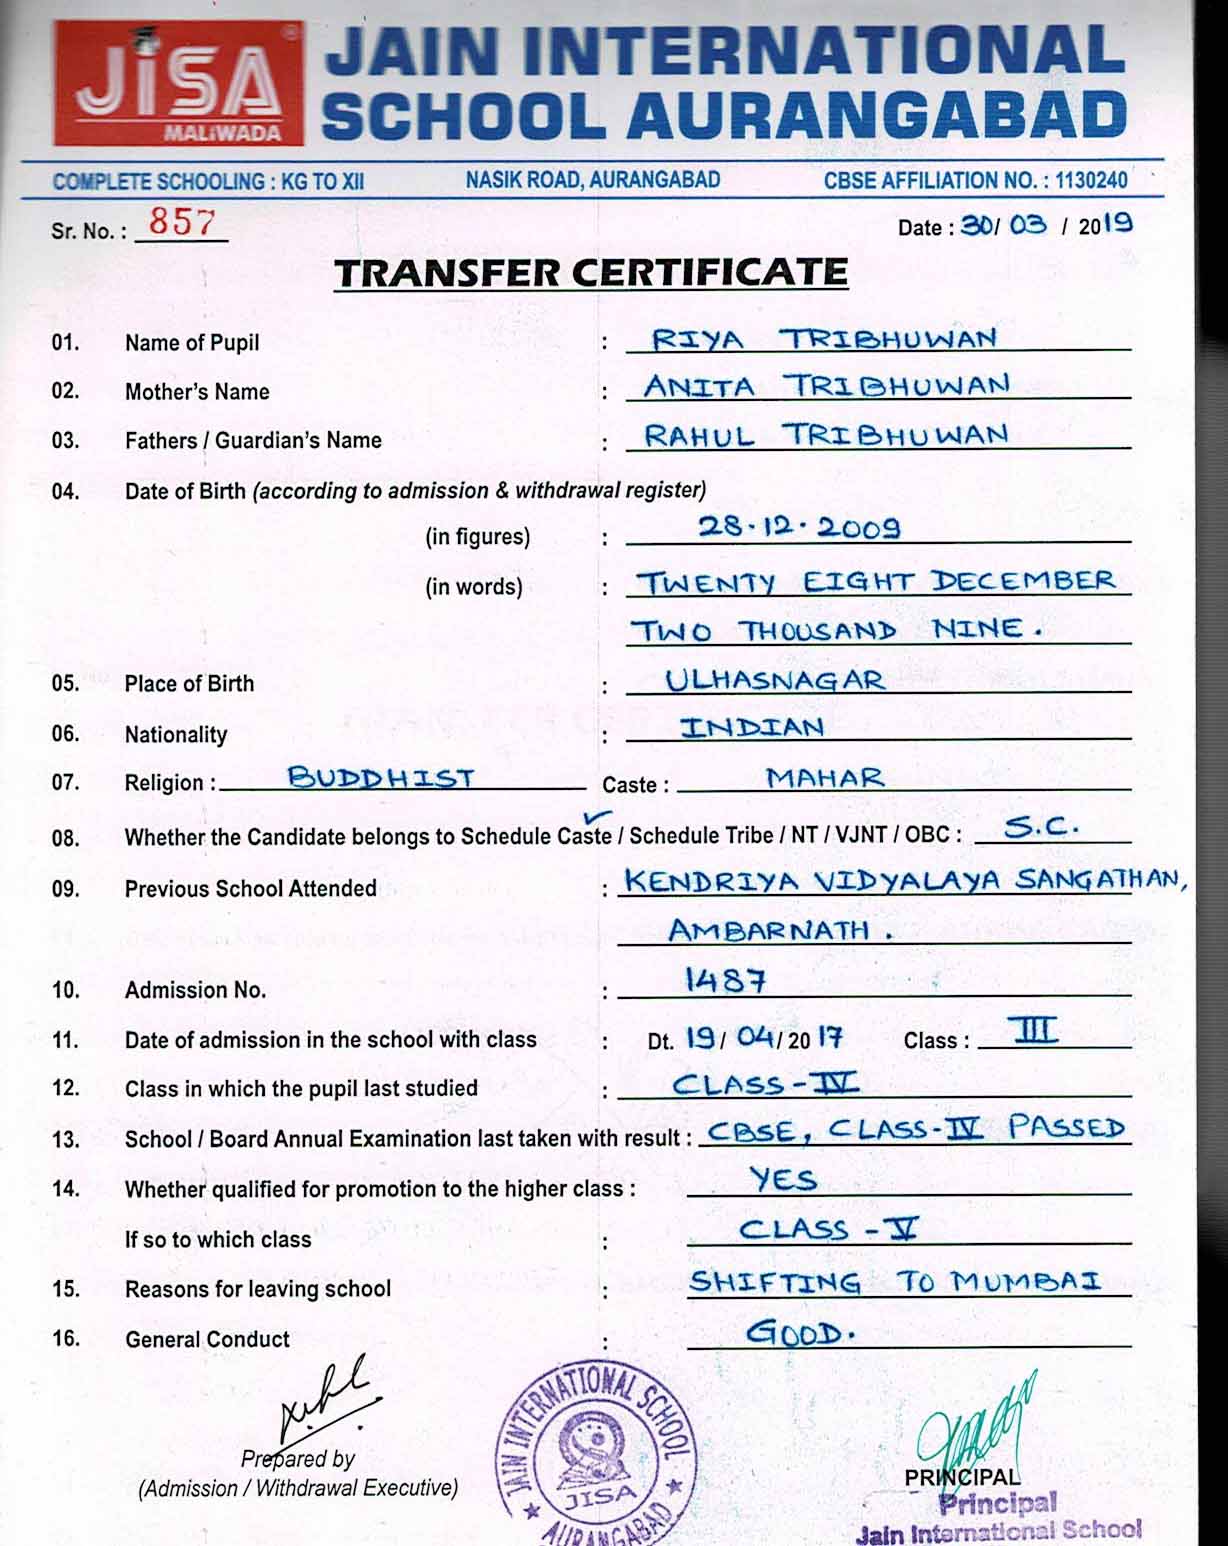 JiSA ®
MALiWADA
JAIN INTERNATIONAL
SCHOOL AURANGABAD
COMPLETE SCHOOLING : KG TO XII NASIK ROAD, AURANGABAD CBSE AFFILIATION NO. : 1130240
Sr. No. : 857 Date : 30/ 03 / 2019
TRANSFER CERTIFICATE
01. Name of Pupil : RIYA TRIBHUWAN
02. Mother's Name : ANITA TRIBHUWAN
03. Fathers / Guardian's Name : RAHUL TRIBHUWAN
04. Date of Birth (according to admission & withdrawal register)
(in figures) : 28.12.2009
(in words) : TWENTY EIGHT DECEMBER
TWO THOUSAND NINE.
05. Place of Birth : ULHASNAGAR
06. Nationality : INDIAN
07. Religion : BUDDHIST Caste : MAHAR
08. Whether the Candidate belongs to Schedule Caste / Schedule Tribe / NT / VJNT / OBC : S.C.
09. Previous School Attended : KENDRIYA VIDYALAYA SANGATHAN,
AMBARNATH.
10. Admission No. : 1487
11. Date of admission in the school with class : Dt. 19/ 04/ 2017 Class : III
12. Class in which the pupil last studied : CLASS-IV
13. School / Board Annual Examination last taken with result : CBSE, CLASS-IV PASSED
14. Whether qualified for promotion to the higher class : YES
If so to which class : CLASS - V
15. Reasons for leaving school : SHIFTING TO MUMBAI
16. General Conduct : GOOD.
JAIN INTERNATIONAL SCHOOL
JISA
★ AURANGABAD ★
Prepared by
(Admission / Withdrawal Executive)
PRINCIPAL
Principal
Jain International School